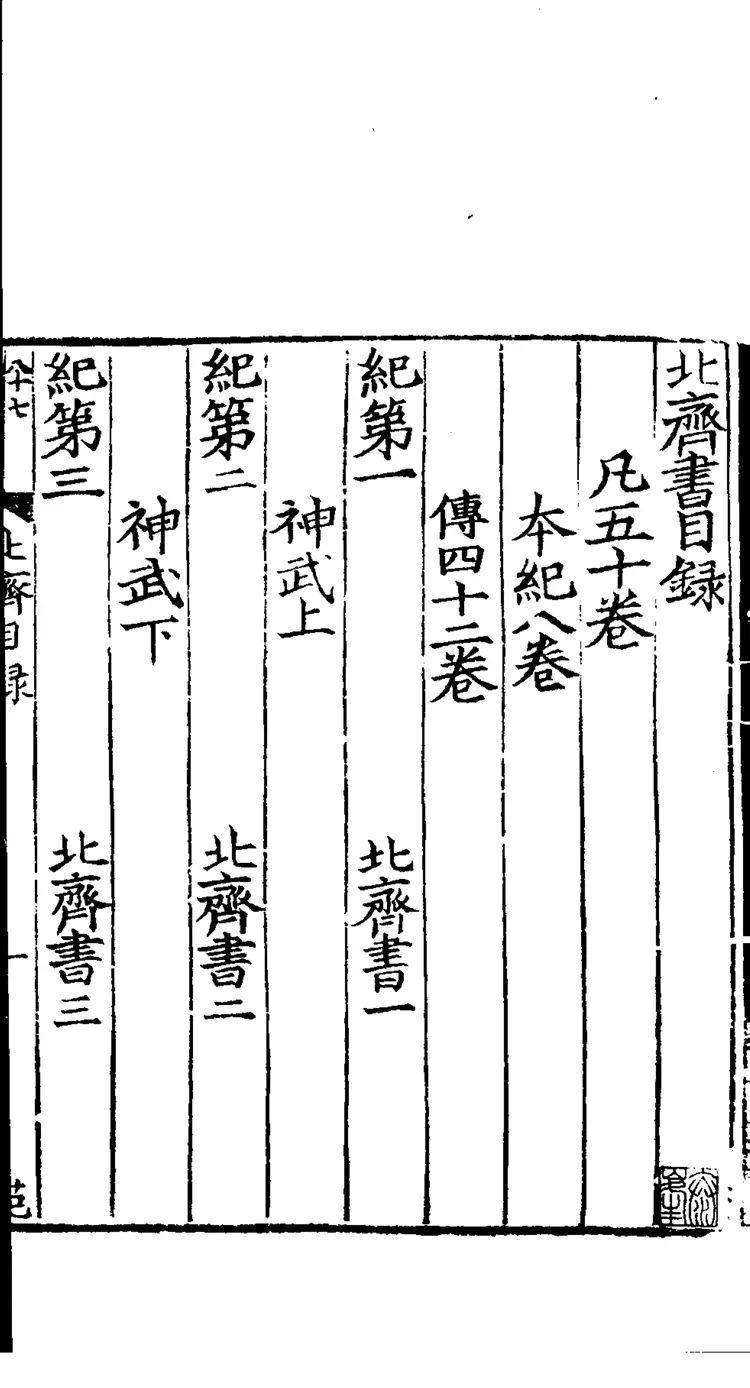 北齊書目録
凡五十卷
本紀八卷
傳四十二卷
紀第一 北齊書一
神武上
紀第二 北齊書二
神武下
紀第三 北齊書三
八十七 北齊目録 一